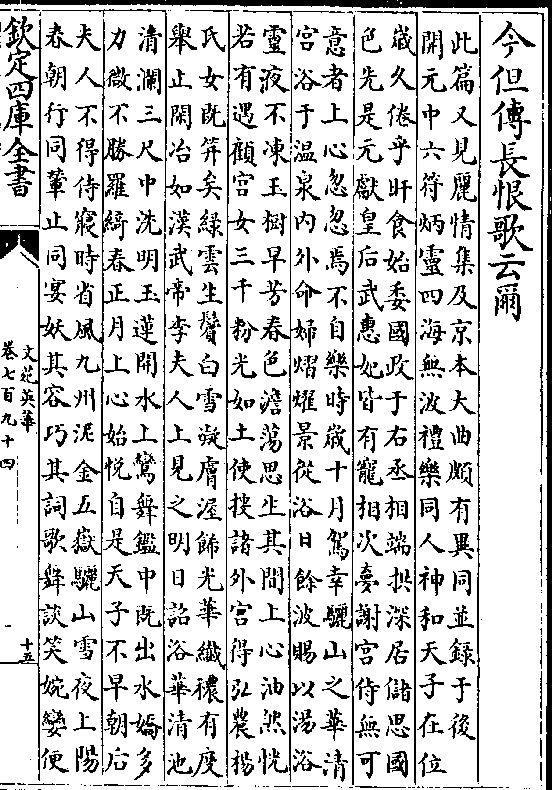 今但傳長恨歌云爾
此篇又見麗情集及京本大曲頗有異同並録于後
開元中六符炳靈四海無波禮樂同人神和天子在位
嵗久倦乎旰食始委國政于右丞相端拱深居儲思國
色先是元獻皇后武惠妃皆有寵相次薨謝宫侍無可
意者上心忽忽焉不自樂時嵗十月駕幸驪山之華清
宫浴于温泉内外命婦熠燿景從浴日餘波賜以湯浴
靈夜不凍玉樹早芳春色澹蕩思生其間上心油然恍
若有遇顧宫女三千粉光如土使搜諸外宫得弘農楊
氏女既笄矣緑雲生鬢白雪凝膚渥飾光華纖穠有度
舉止閑冶如漢武帝李夫人上見之明日詔浴華清池
清瀾三尺中洗明玉蓮開水上鸞舞鑑中既出水嬌多
力微不勝羅綺春正月上心始悦自是天子不早朝后
夫人不得侍寢時省風九州泥金五嶽驪山雪夜上陽
春朝行同輦止同宴妖其容巧其詞歌舞談笑婉孌便
欽定四庫全書
文苑英華
卷七百九十四
十五